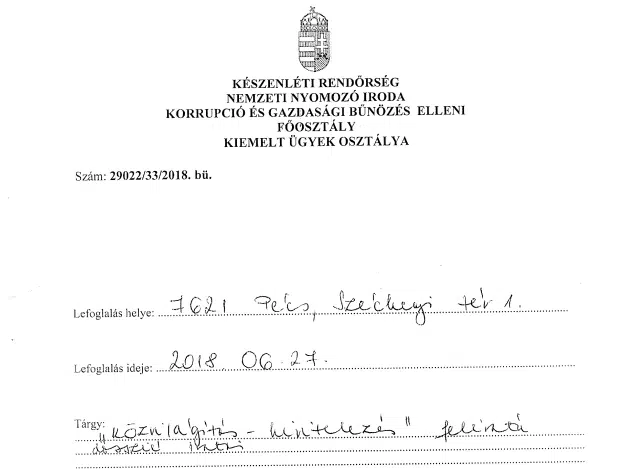 KÉSZENLÉTI RENDŐRSÉG
NEMZETI NYOMOZÓ IRODA
KORRUPCIÓ ÉS GAZDASÁGI BŰNÖZÉS ELLENI
FŐOSZTÁLY
KIEMELT ÜGYEK OSZTÁLYA
Szám: 29022/33/2018. bü.
Lefoglalás helye: 7621 Pécs, Széchenyi tér 1.
Lefoglalás ideje: 2018. 06. 27.
Tárgy: "Közvilágítás - hitelezés" feliratú
iratai